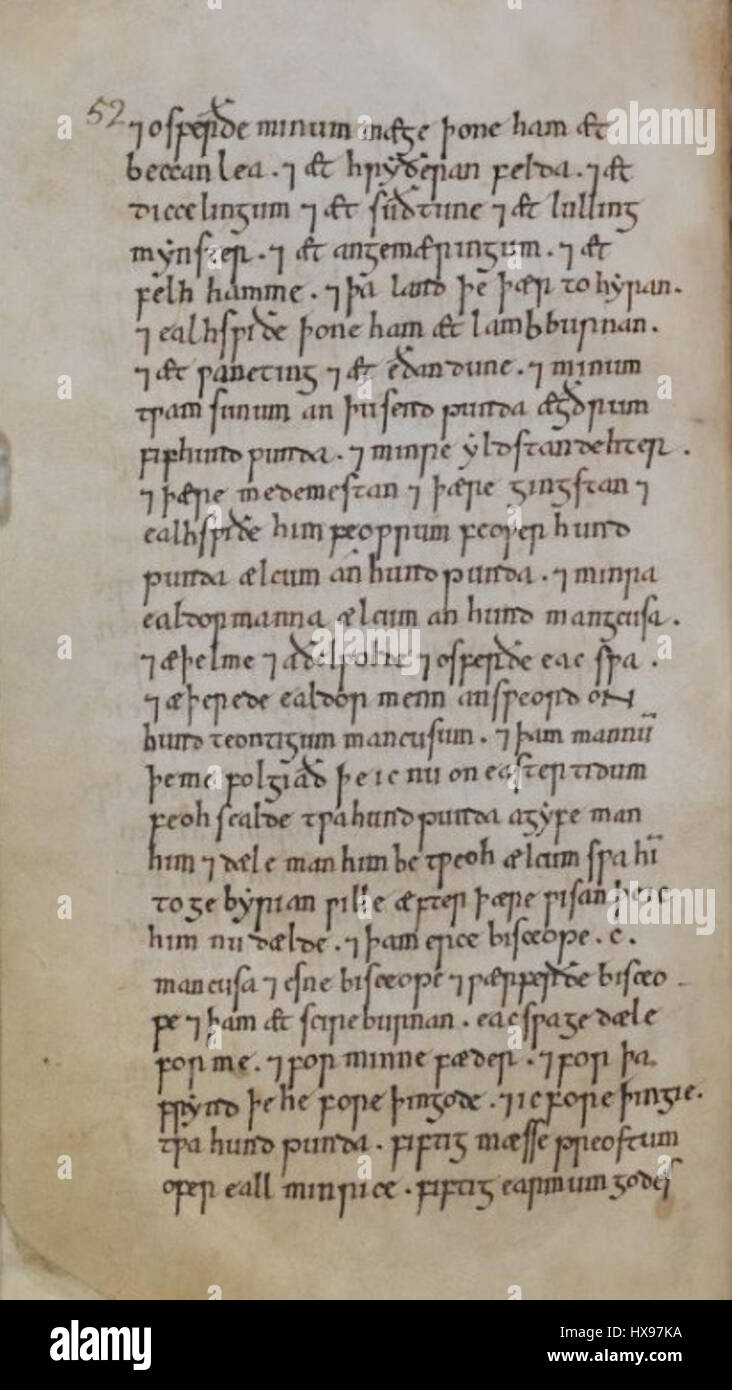 52
⁊ osferðe minum mæge þone ham æt
beccanlea . ⁊ æt hryðeran felda . ⁊ æt
diccelingum ⁊ æt suðtune ⁊ æt lulling
mynster . ⁊ æt angemæringum . ⁊ æt
felhhamme . ⁊ þa land þe þær to hyran .
⁊ ealhswiðe þone ham æt lambburnan .
⁊ æt waneting ⁊ æt eðandune . ⁊ minum
twam sunum an þusend punda ægðrum
fifhund punda . ⁊ minre yldstan dehter .
⁊ þære medemestan ⁊ þære gingstan ⁊
ealhswiðe him feowrum feower hund
punda ælcum an hund punda . ⁊ minra
ealdormanna ælcum an hund mangcusa .
⁊ æþelme ⁊ aðelwolde ⁊ osferðe eac swa .
⁊ æþerede ealdormenn an sweord on
hund teontigum mancusum . ⁊ þam mannū
þe me folgiað þe ic nu on eastertidum
feoh sealde twa hund punda agyfe man
him ⁊ dæle man him betweoh ælcum swa hī
to gebyrian wille æfter þære wisan þe ic
him nu dælde . ⁊ þam ercebisceope . c .
mancusa ⁊ esne bisceope ⁊ wærferðe bisceo
pe ⁊ þam æt scireburnan . eac swa gedæle
for me . ⁊ for minne fæder . ⁊ for þa
frynd þe he fore þingode . ⁊ ic fore þingie .
twa hund punda . fiftig mæssepreostum
ofer eall min rice . fiftig earmum godes
alamy stock photo
alamy
HX97KA
www.alamy.com